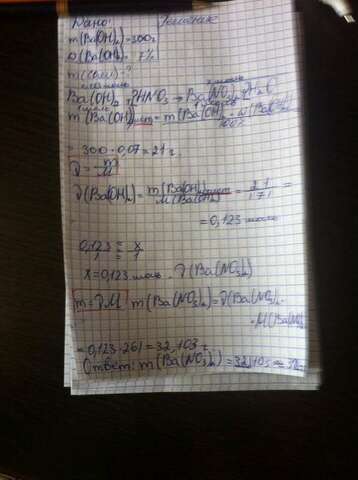 Дано: Решение
m(Ba(OH)₂)=300г
ω(Ba(OH)₂)=7%
m(соли)-?
Ba(OH)₂+2HNO₃→Ba(NO₃)₂+2H₂O
m(Ba(OH)₂) = m(Ba(OH)₂)·ω(Ba(OH)₂)
100%
=300·0,07=21г.
ν=m/M
ν(Ba(OH)₂)=m(Ba(OH)₂)/M(Ba(OH)₂)=21/171=
=0,123 моль
0,123/1=x/1
x=0,123 моль ν(Ba(NO₃)₂)
m=νM m(Ba(NO₃)₂)=ν(Ba(NO₃)₂·
·M(Ba(NO₃)
=0,123·261=32,103г
Ответ: m(Ba(NO₃)₂)=32,103